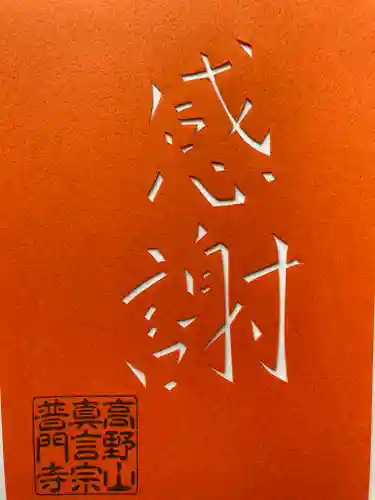 感謝
高野山
真言宗
普門寺